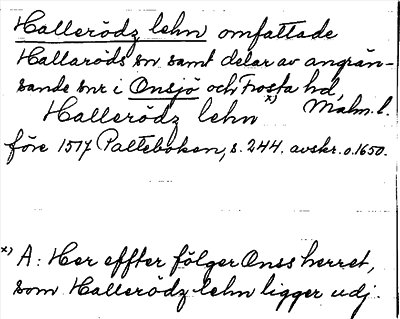 Hallerödz lehn omfattade
Hallaröds sn samt delar av angrän-
sande snr i Onsjö och Frosta hd,
Hallerödz lehn x) Malm. l.
före 1517 Palteboken, s. 244. avskr. o. 1650.
x) A: Her effter fölger Onss herret,
som Hallerödz lehn ligger udj.